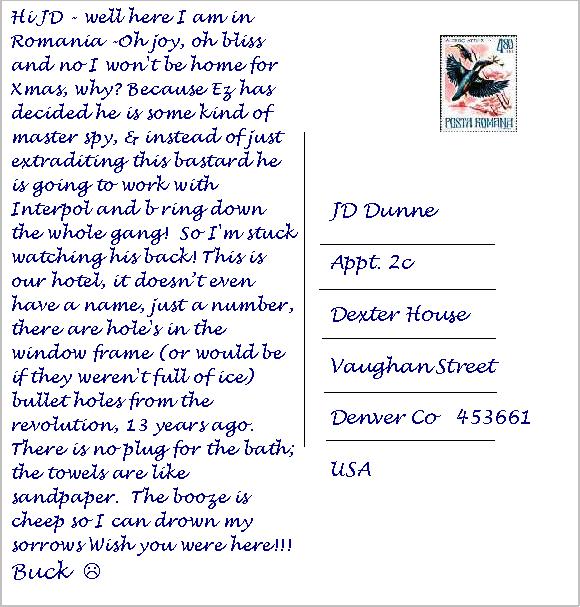 Hi JD - well here I am in
Romania -Oh joy, oh bliss
and no I won't be home for
Xmas, why? Because Ez has
decided he is some kind of
master spy, & instead of just
extraditing this bastard he
is going to work with
Interpol and b ring down
the whole gang!  So I'm stuck
watching his back! This is
our hotel, it doesn't even
have a name, just a number,
there are hole's in the
window frame (or would be
if they weren't full of ice)
bullet holes from the
revolution, 13 years ago.
There is no plug for the bath;
the towels are like
sandpaper.  The booze is
cheep so I can drown my
sorrows Wish you were here!!!
Buck ☹
4.80
POSTA ROMANA
JD Dunne
Appt. 2c
Dexter House
Vaughan Street
Denver Co   453661
USA